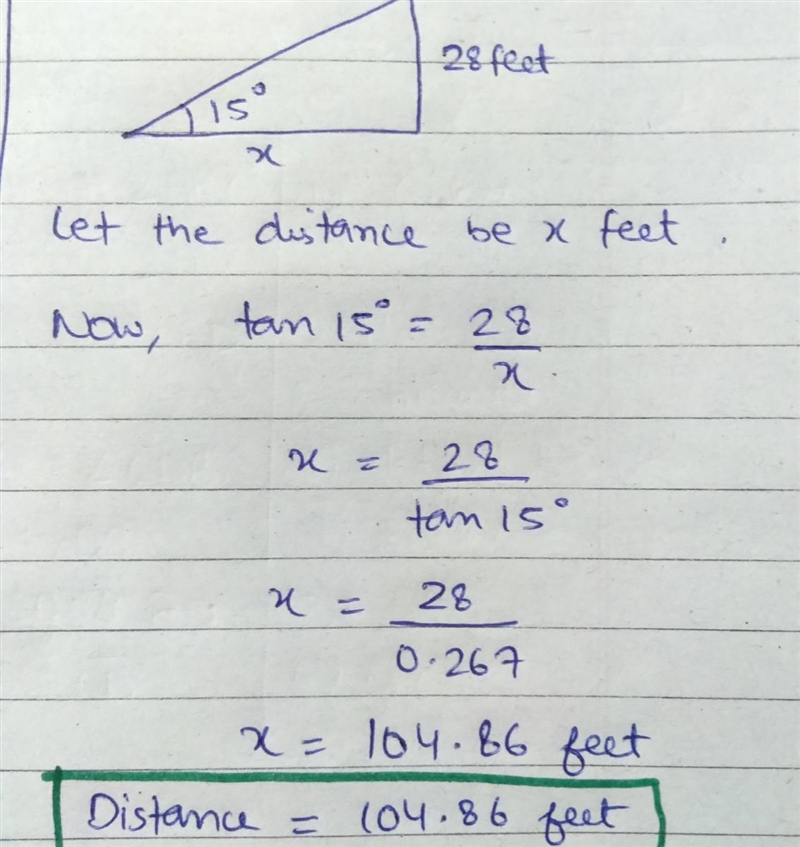 28 feet
15°
x
Let the distance be x feet.
Now, tan 15° = 28/x
x = 28/tan 15°
x = 28/0.267
x = 104.86 feet
Distance = 104.86 feet